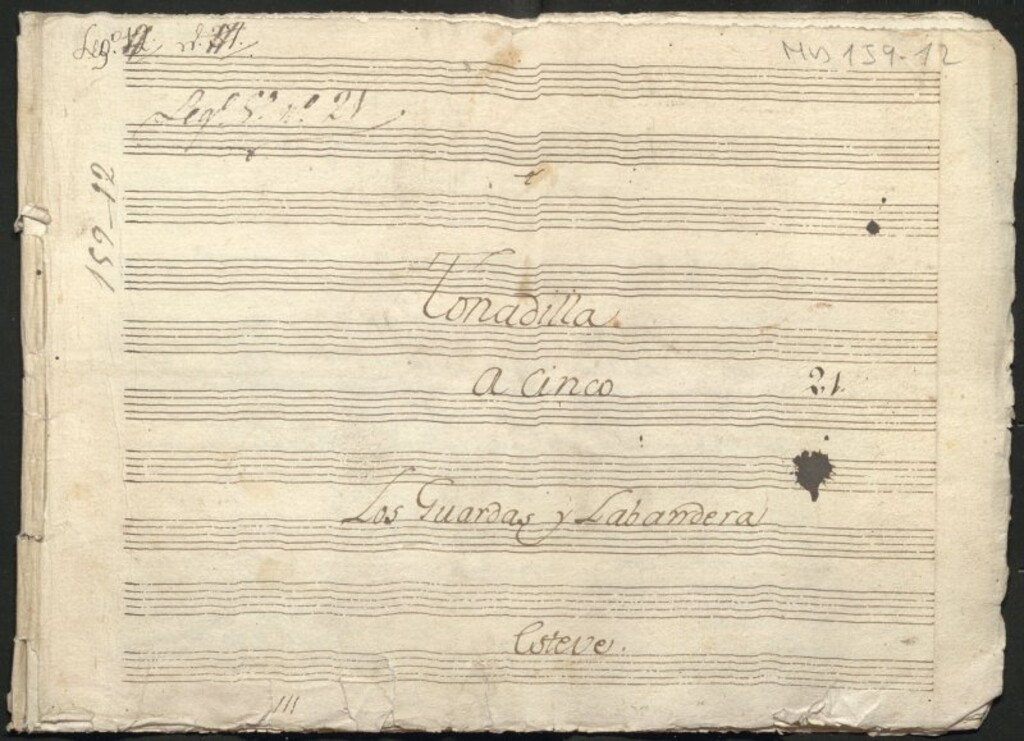 Leg.º
MUS 159-12
Leg.º 5.º n.º 21
159-12
Tonadilla
A Cinco
21.
Los Guardas y Labandera
Esteve.